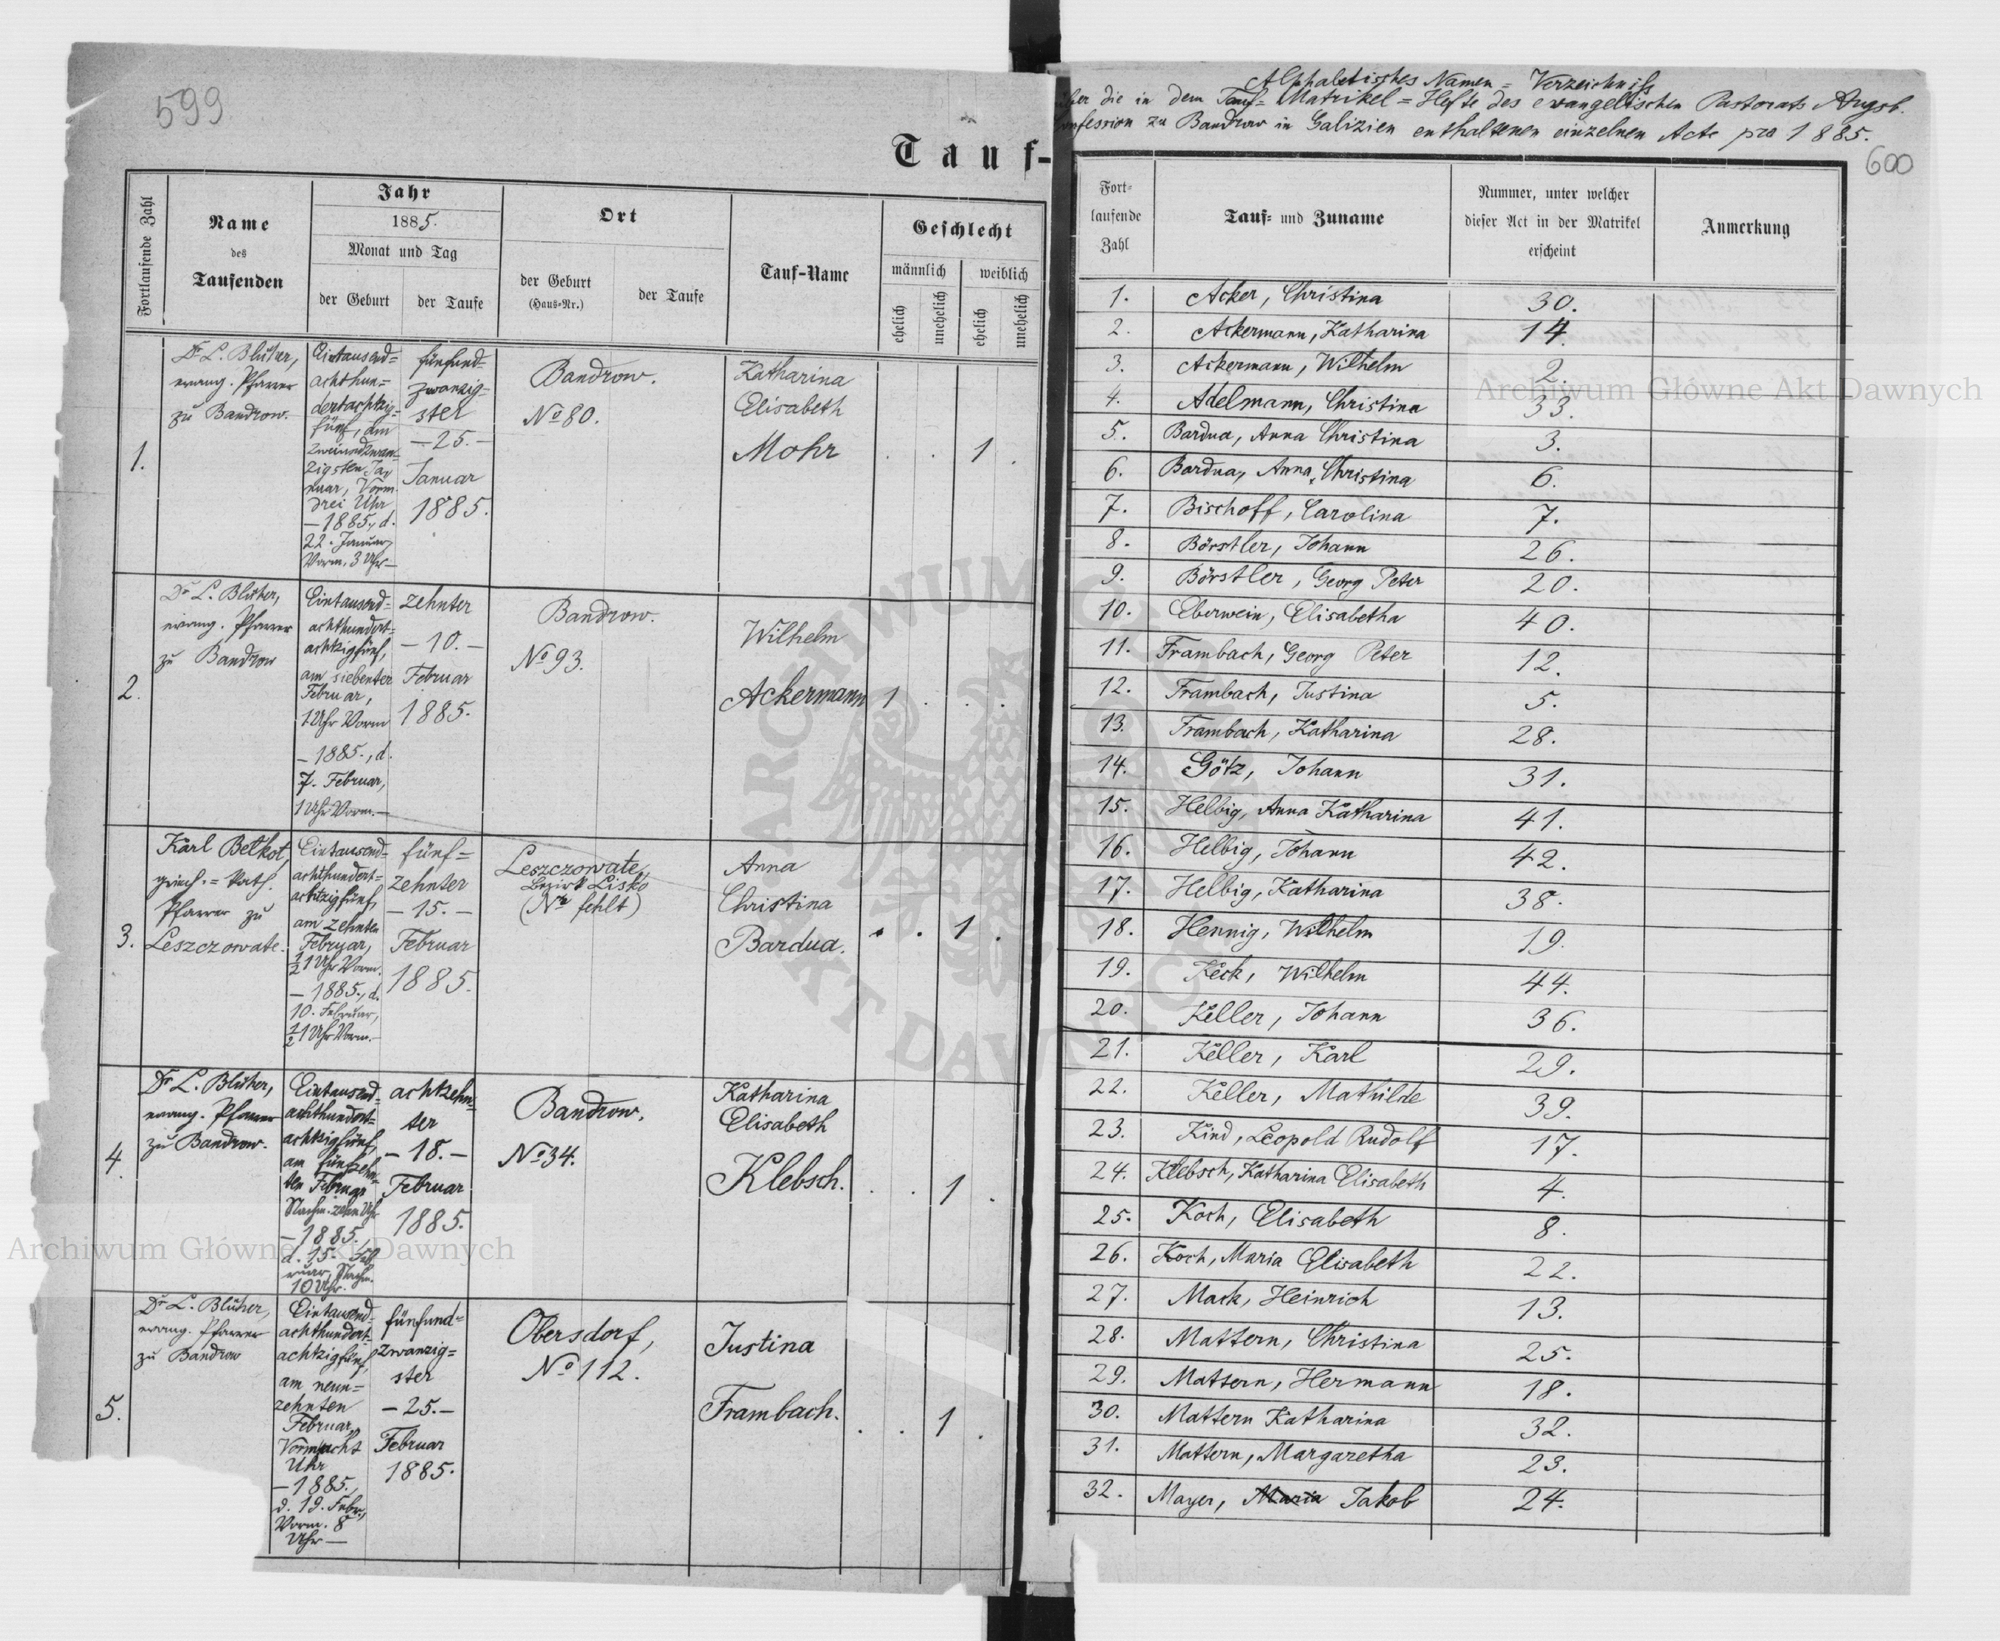 599
Tauf-
Fortlaufende Zahl
Name
des
Taufenden
Jahr
1885.
Monat und Tag
der Geburt
der Taufe
Ort
der Geburt
(Haus-Nr.)
der Taufe
Tauf-Name
Geschlecht
männlich
weiblich
ehelich
unehelich
ehelich
unehelich
1.
Dr L. Blüher,
evang. Pfarrer
zu Bandrow.
Eintausend=
achthun=
dertachtzig=
fünf, am
zweiundzwan=
zigsten Ja=
nuar, Vorm.
drei Uhr
— 1885., d.
22. Januar,
Vorm. 3 Uhr —
fünfund=
zwanzig=
ster
— 25. —
Januar
1885.
Bandrow.
No 80.
Katharina
Elisabeth
Mohr
. . 1 .
2.
Dr L. Blüher,
evang. Pfarrer
zu Bandrow
Eintausend=
achthundert=
achtzigfünf,
am siebenten
Februar,
1 Uhr Vorm
— 1885., d.
7. Februar,
1 Uhr Vorm. —
zehnter
— 10. —
Februar
1885.
Bandrow.
No 93.
Wilhelm
Ackermann
1 . . .
3.
Karl Betkot,
griech.=kath.
Pfarrer zu
Leszczowate.
Eintausend=
achthundert=
achtzigfünf,
am zehnten
Februar,
½1 Uhr Vorm.
— 1885., d.
10. Februar,
½1 Uhr Vorm. —
fünf=
zehnter
— 15. —
Februar
1885.
Leszczowate,
Bezirk Lisko
(Nr fehlt)
Anna
Christina
Bardua.
. . 1 .
4.
Dr L. Blüher,
evang. Pfarrer
zu Bandrow.
Eintausend=
achthundert=
achtzigfünf,
am fünfzehn=
ten Februar
Nachm. zehn Uhr
— 1885.
d. 15. Feb=
ruar, Nachm.
10 Uhr.
achtzehn=
ter
— 18. —
Februar
1885.
Bandrow.
No 34.
Katharina
Elisabeth
Klebsch.
. . 1 .
5.
Dr L. Blüher,
evang. Pfarrer
zu Bandrow
Eintausend=
achthundert=
achtzigfünf,
am neun=
zehnten
Februar,
Vorm. acht
Uhr
— 1885.,
d. 19. Febr.,
Vorm. 8
Uhr —
fünfund=
zwanzig=
ster
— 25. —
Februar
1885.
Obersdorf,
No 112.
Justina
Frambach.
. . 1 .
Alphabetisches Namen=Verzeichniß
über die in dem Tauf=Matrikel=Hefte des evangelischen Pastorats Augsb.
Confession zu Bandrow in Galizien enthaltenen einzelnen Acte pro 1885.
600
Fort-
laufende
Zahl
Tauf- und Zuname
Nummer, unter welcher
dieser Act in der Matrikel
erscheint
Anmerkung
1. Acker, Christina 30.
2. Ackermann, Katharina 14.
3. Ackermann, Wilhelm 2.
4. Adelmann, Christina 33.
5. Bardua, Anna Christina 3.
6. Bardua, Anna Christina 6.
7. Bischoff, Carolina 7.
8. Börstler, Johann 26.
9. Börstler, Georg Peter 20.
10. Eberwein, Elisabetha 40.
11. Frambach, Georg Peter 12.
12. Frambach, Justina 5.
13. Frambach, Katharina 28.
14. Götz, Johann 31.
15. Helbig, Anna Katharina 41.
16. Helbig, Johann 42.
17. Helbig, Katharina 38.
18. Hennig, Wilhelm 19.
19. Keck, Wilhelm 44.
20. Keller, Johann 36.
21. Keller, Karl 29.
22. Keller, Mathilde 39.
23. Kind, Leopold Rudolf 17.
24. Klebsch, Katharina Elisabeth 4.
25. Koch, Elisabeth 8.
26. Koch, Maria Elisabeth 22.
27. Mack, Heinrich 13.
28. Mattern, Christina 25.
29. Mattern, Hermann 18.
30. Mattern Katharina 32.
31. Mattern, Margaretha 23.
32. Mayer, Maria Jakob 24.
Archiwum Główne Akt Dawnych
Archiwum Główne Akt Dawnych
ARCHIWUM GŁÓWNE AKT DAWNYCH